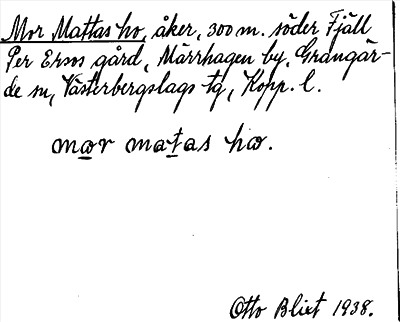 Mor Mattas ho, åker, 300 m. söder Fjäll
Per Ersos gård, Märrhagen by, Grangär-
de sn, Västerbergslags tg, Kopp. l.
mor matas ho.
Otto Blixt 1938.